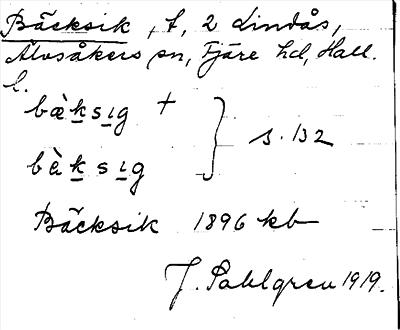 Bäcksik, t, 2 Lindås,
Älvsåkers sn, Fjäre hd, Hall.
l.
bæ̀ksig +
s. 132
bèksig
Bäcksik 1896 kb
J. Sahlgren 1919.